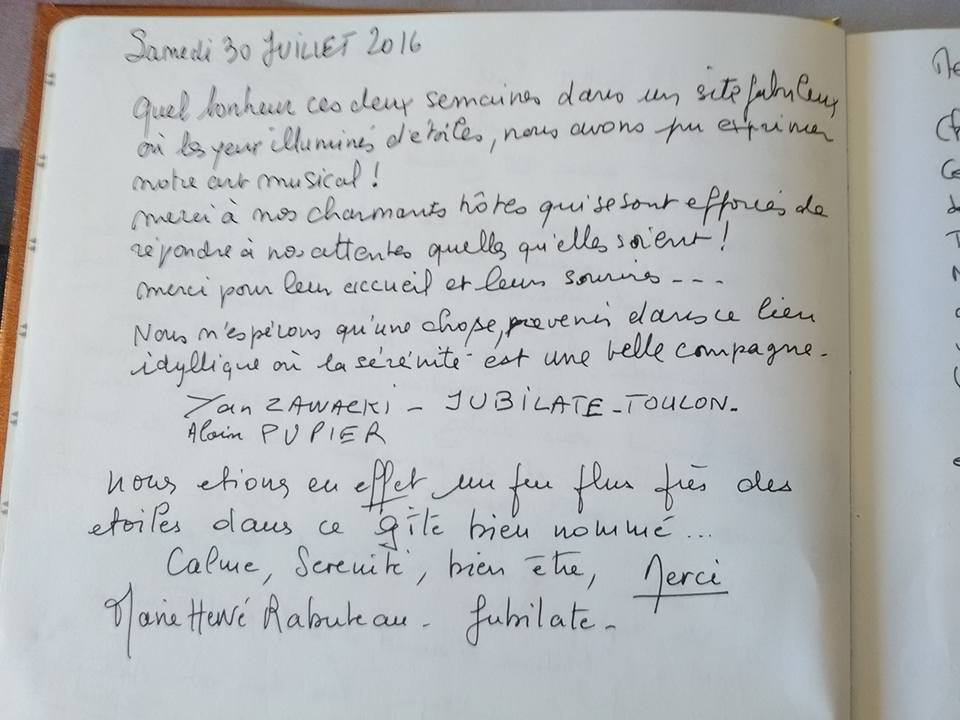 Samedi 30 JUILLET 2016
Quel bonheur ces deux semaines dans un site fabuleux
où les yeux illuminés d'étoiles, nous avons pu exprimer
notre art musical !
merci à nos charmants hôtes qui se sont efforcés de
répondre à nos attentes quelles qu'elles soient !
merci pour leur accueil et leurs sourires ---
Nous n'espérons qu'une chose, revenir dans ce lieu
idyllique où la sérénité est une belle compagne.
Yan ZAWACKI - JUBILATE - TOULON.
Alain PUPIER
nous etions en effet un peu plus près des
etoiles dans ce gîte bien nommé...
Calme, Serenité, bien être, Merci
Marie Hervé Rabuteau - Jubilate -